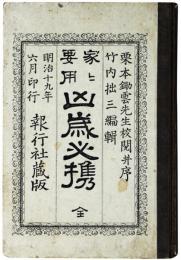 栗本鋤雲先生校閲并序
竹内拙三編輯
家々要用
凶歳必携
全
明治十九年六月印行
報行社蔵版